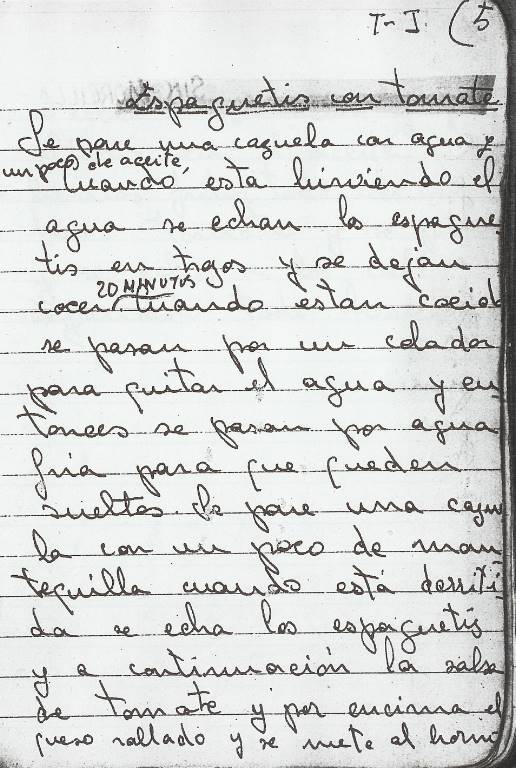 I-I (5
Espaguetis con tomate
Se pone una cazuela con agua y
un poco de aceite,
cuando esta hirviendo el
agua se echan los espague
tis en trozos y se dejan
20 MINUTOS
cocer, cuando estan cocid
se pasan por un colador
para quitar el agua y en-
tonces se pasan por agua
fria para que queden
sueltos. Se pone una cazue
la con un poco de man
tequilla cuando está derriti-
da se echa los espaguetis
y a continuación la salsa
de tomate y por encima el
queso rallado y se mete al horno